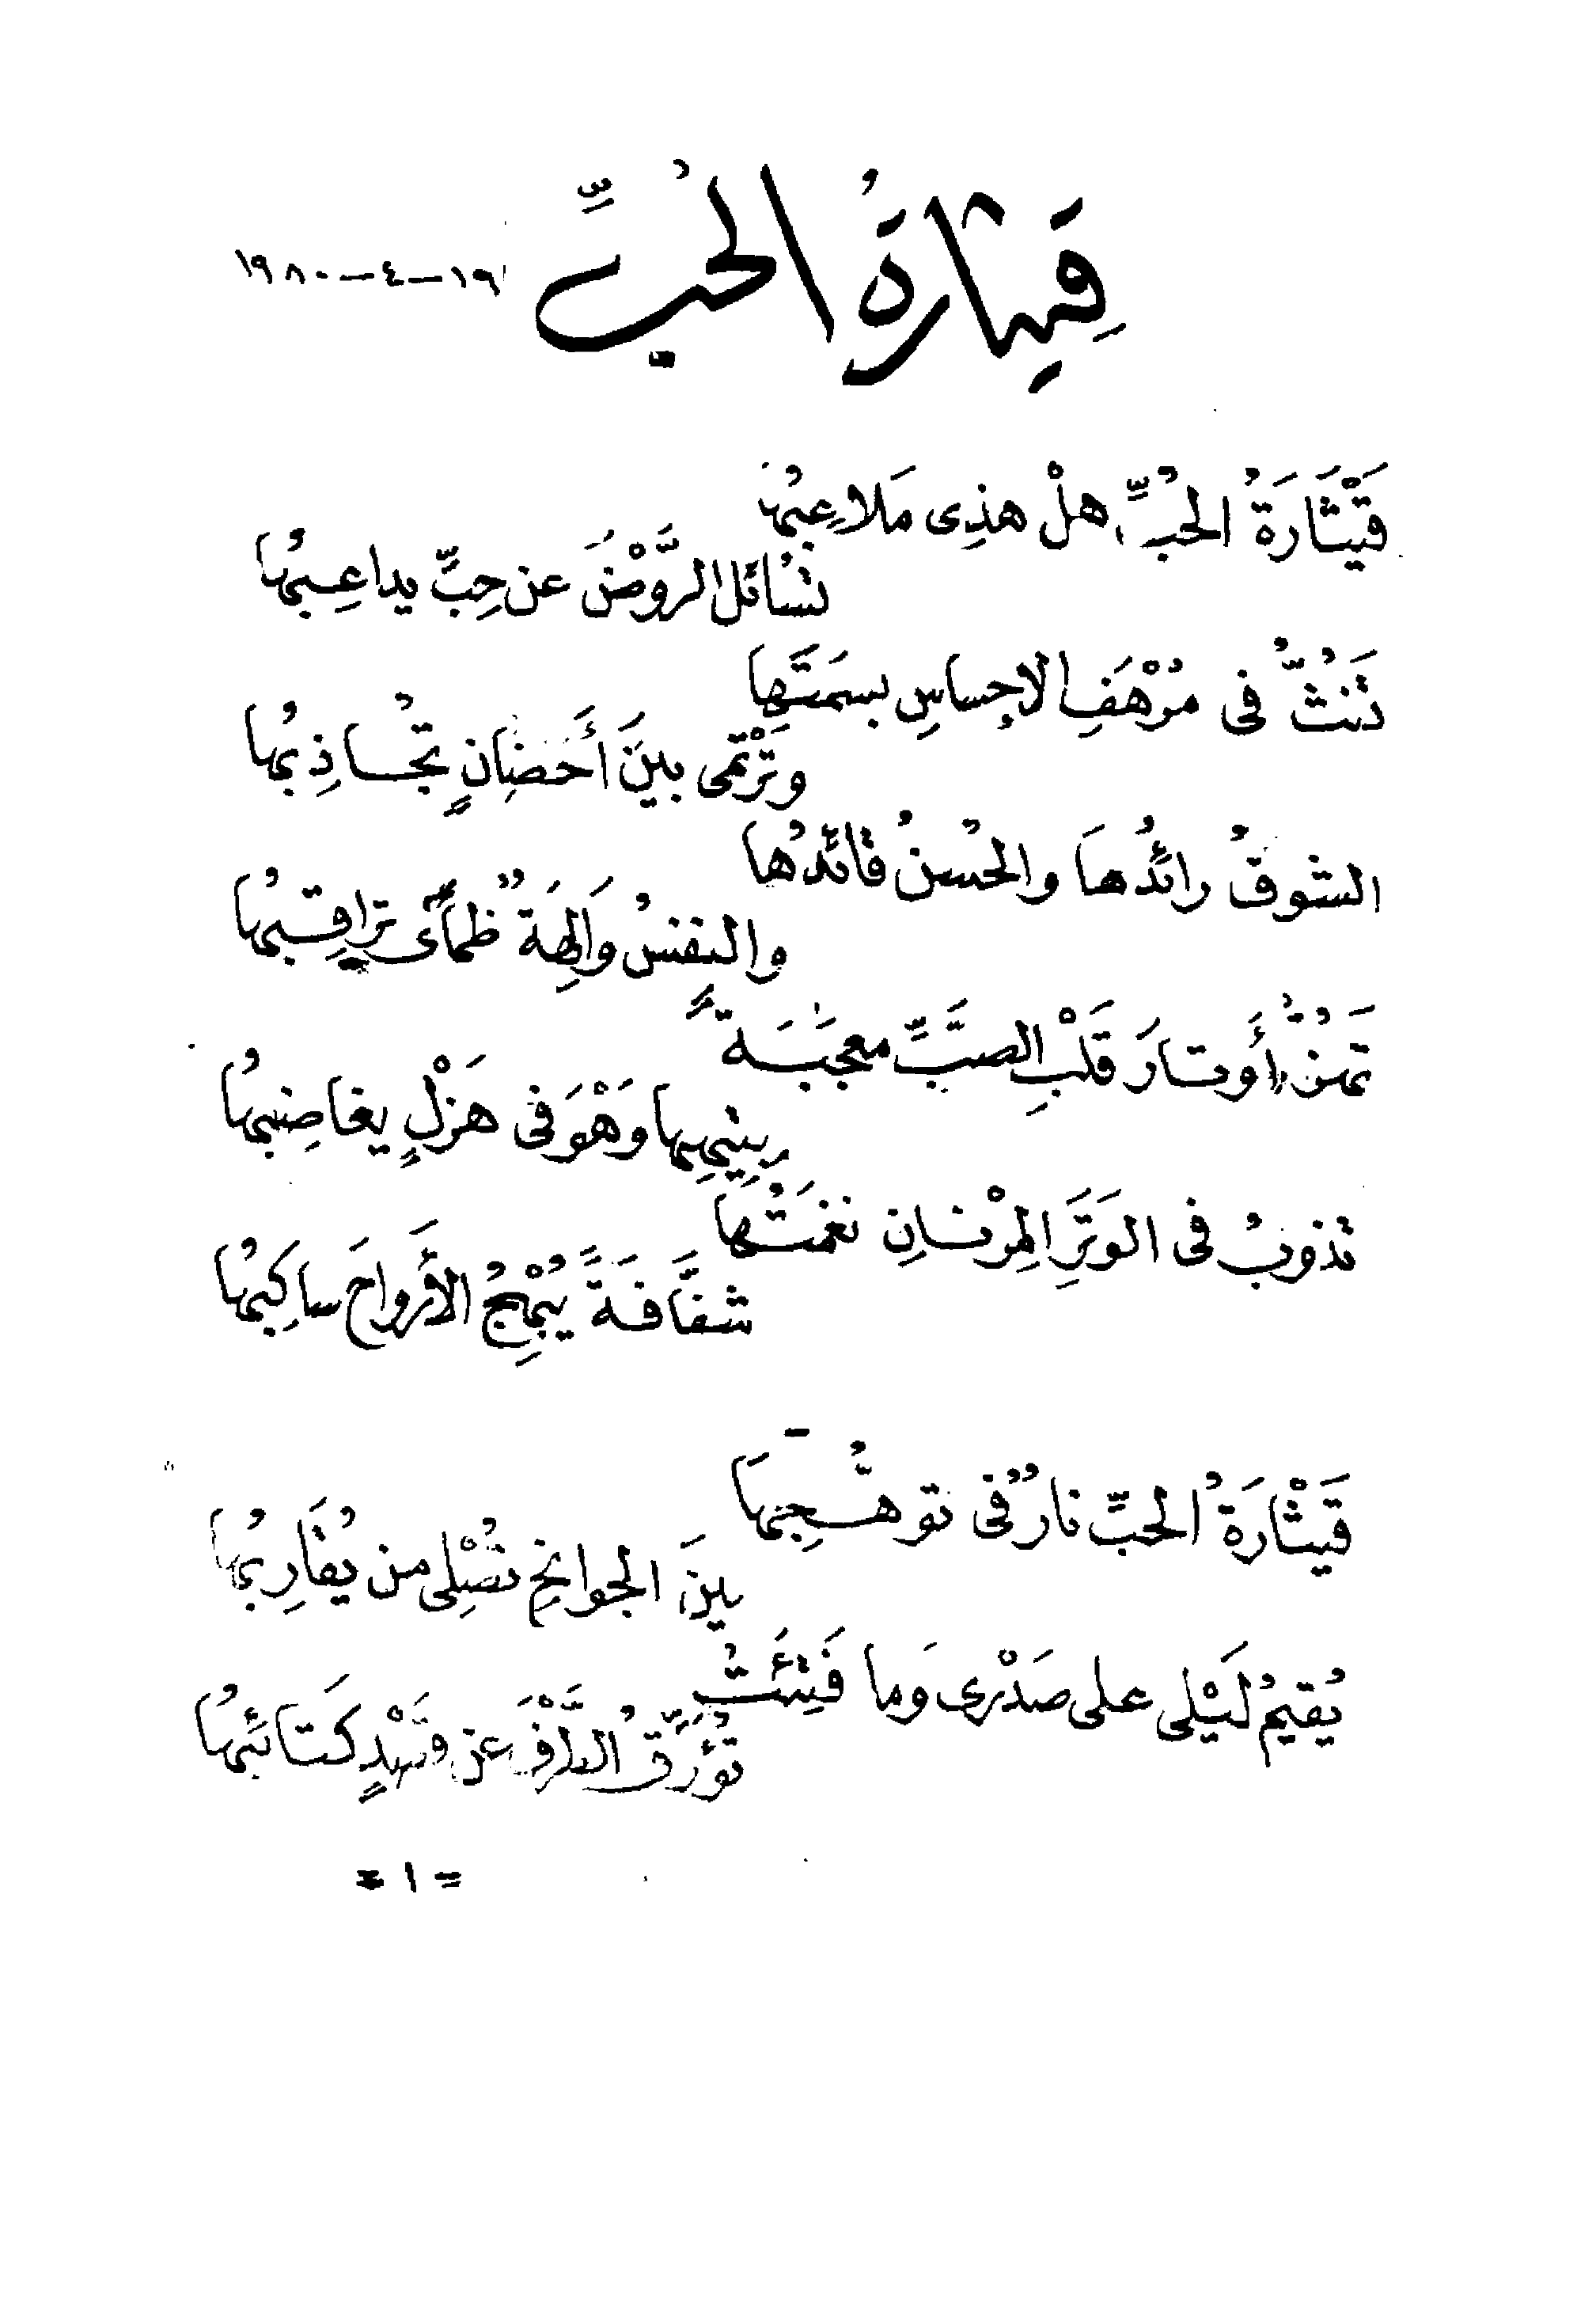 قِيثارةُ الحُبِّ
١٩-٤-١٩٨٠
قَيْثَارَةُ الحُبِّ، هلْ هذِى مَلاعِبُها
تسُائلُ الرَّوْضَ عن حِبِّ يداعِبُها
تَنُثُّ فى مُرْهَفِ الاحِساسِ بسمَتَها
وتَرْتمى بينَ أَحضَانٍ تجُاذِبُها
الشوقُ رائدُها والحُسنُ قائدُها
والنفسُ وَالِهَةٌ ظمأى تراقِبُها
تَهُزُّ أوتارَ قَلْبِ الصبِّ معجَبَةً
بِتيهِها وَهْوَ فى هَزْلٍ يغاضِبُها
تذوبُ فى الوَتَرِ المِرْنانِ نغمَتُها
شفَّافَةً يُبْهِجُ الأَرواحَ ساكِبُها
قَيْثَارَةُ الحبِّ نارٌ فى توهُّجِها
بينَ الجوانحِ تصُْلِى من يُقَارِبُها
يُقيمُ لَيْلى على صَدْرى وَما فَتِئَتْ
تؤُرِّقُ الطَّرْفَ عن سُهْدٍ كَتَائبُها
= ١ =